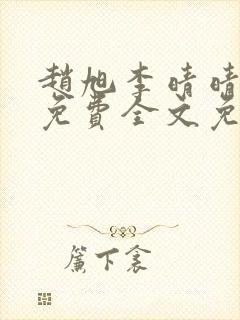 趙旭李晴晴
免費全文免
簾下衾